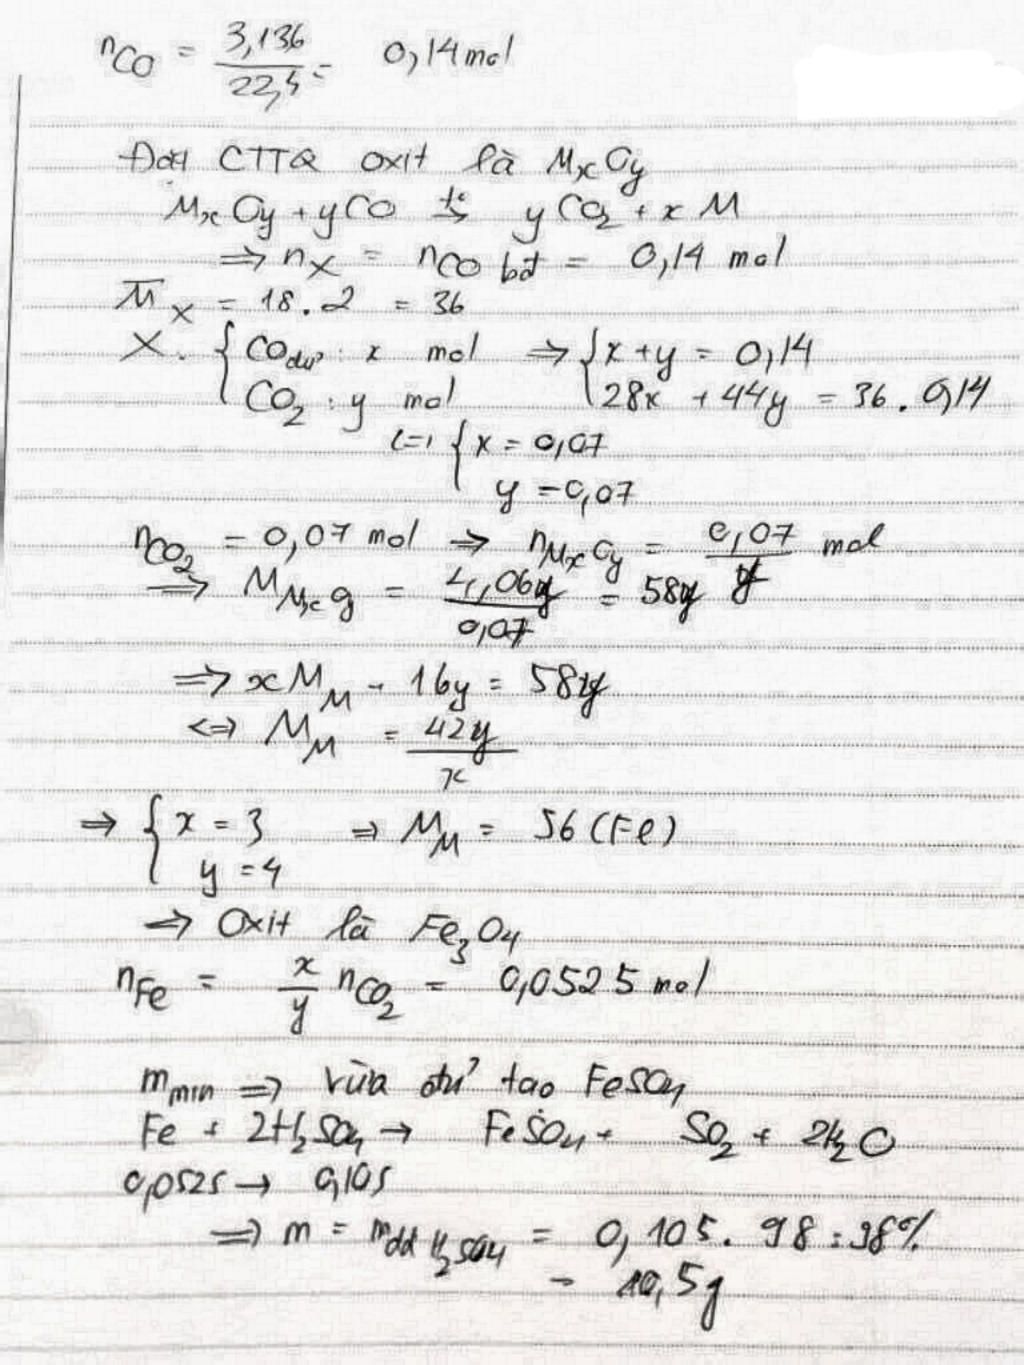 nCO = 3,136/22,4 = 0,14 mol
Đặt CTTQ oxit là MxOy
MxOy + yCO t°→ yCO2 + xM
⇒ nX = nCO bđ = 0,14 mol
M̅X = 18.2 = 36
X: { CO dư: x mol ⇒ { x + y = 0,14
CO2: y mol 28x + 44y = 36.0,14
<=> { x = 0,07
y = 0,07
nCO2 = 0,07 mol ⇒ nMxOy = 0,07/y mol
⇒ MMxOy = 4,06y/0,07 = 58y
⇒ xMM + 16y = 58y
⇔ MM = 42y/x
⇒ { x = 3 ⇒ MM = 56 (Fe)
y = 4
⇒ Oxit là Fe3O4
nFe = x/y nCO2 = 0,0525 mol
mmin ⇒ vừa đủ tạo FeSO4
Fe + 2H2SO4 → FeSO4 + SO2 + 2H2O
0,0525 → 0,105
⇒ m = mdd H2SO4 = 0,105.98:98%
= 10,5g